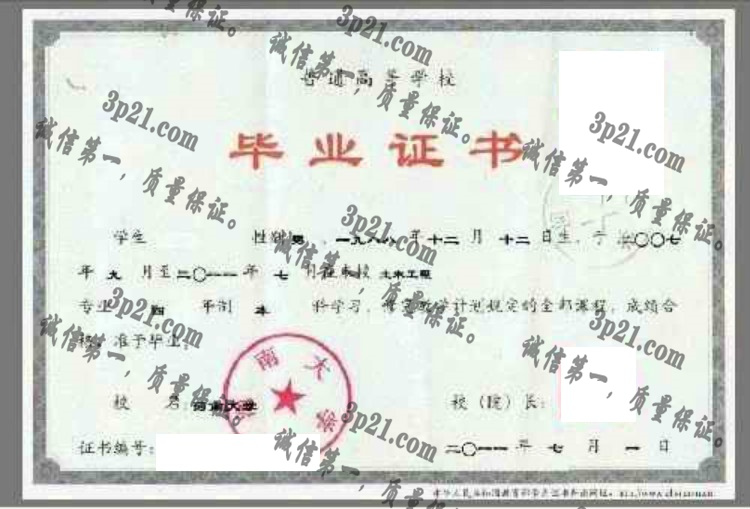 普通高等学校
毕业证书
学生 性别 男，一九八八年十二月十二日生，于二〇〇七
年九月至二〇一一年七月在本校 土木工程
专业 四 年制 本 科学习，修完教学计划规定的全部课程，成绩合
格，准予毕业。
校 名：河南大学
校（院）长：
证书编号：
二〇一一年七月一日
南大学
3p21.com
诚信第一，质量保证。
3p21.com
诚信第一，质量保证。
3p21.com
诚信第一，质量保证。
3p21.com
诚信第一，质量保证。
3p21.com
诚信第一，质量保证。
3p21.com
诚信第一，质量保证。
3p21.com
诚信第一，质量保证。